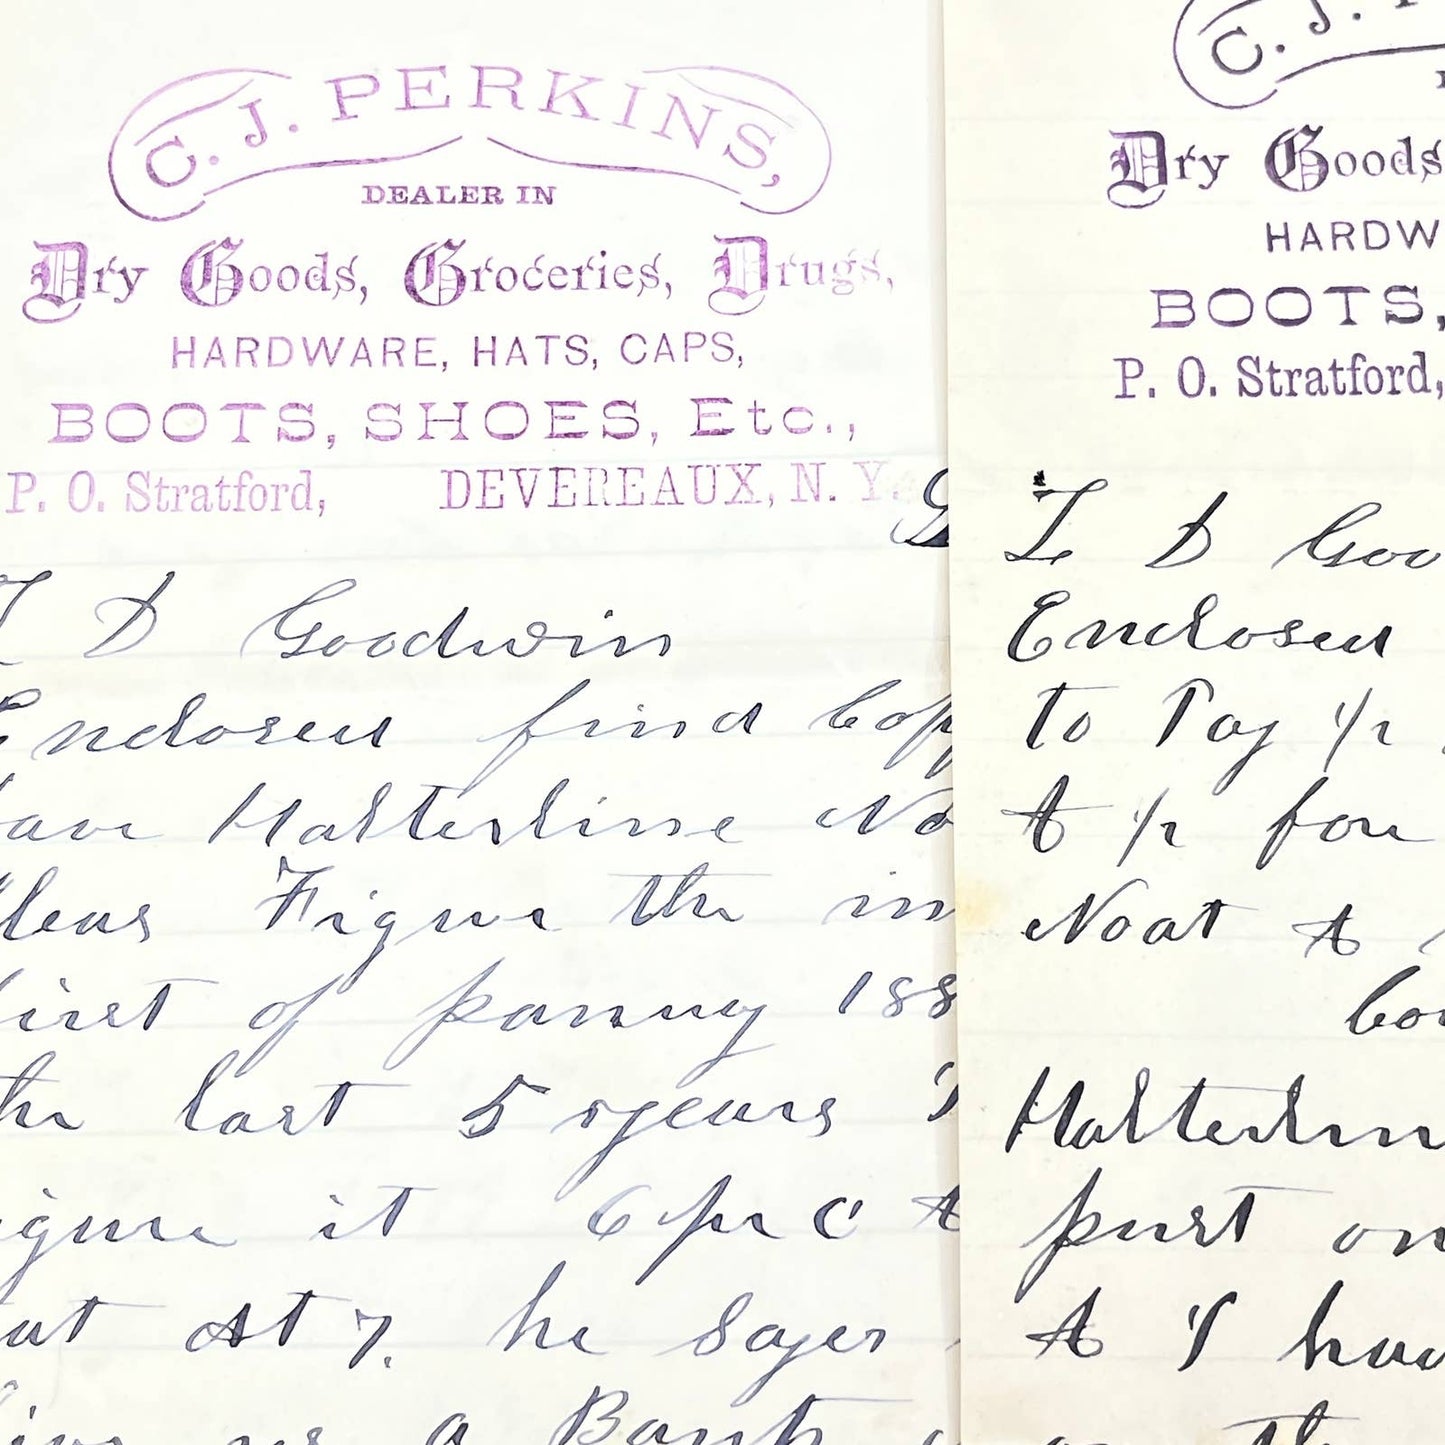 C. J. PERKINS,
DEALER IN
Dry Goods, Groceries, Drugs,
HARDWARE, HATS, CAPS,
BOOTS, SHOES, Etc.,
P. O. Stratford, DEVEREAUX, N. Y.
I D Goodwin
Enclosed find Cop
Halterline No
Pleas Figure the in
first of 188
the last 5 years
figure it 6 pr c
at 7. he sayes
give us a Bank
C. J. P
Dry Goods
HARDW
BOOTS,
P. O. Stratford,
I D Goo
Enclosed
to Pay 1/2
A 1/2 for
Noat A
Co
Halterlin
purst on
A I hav